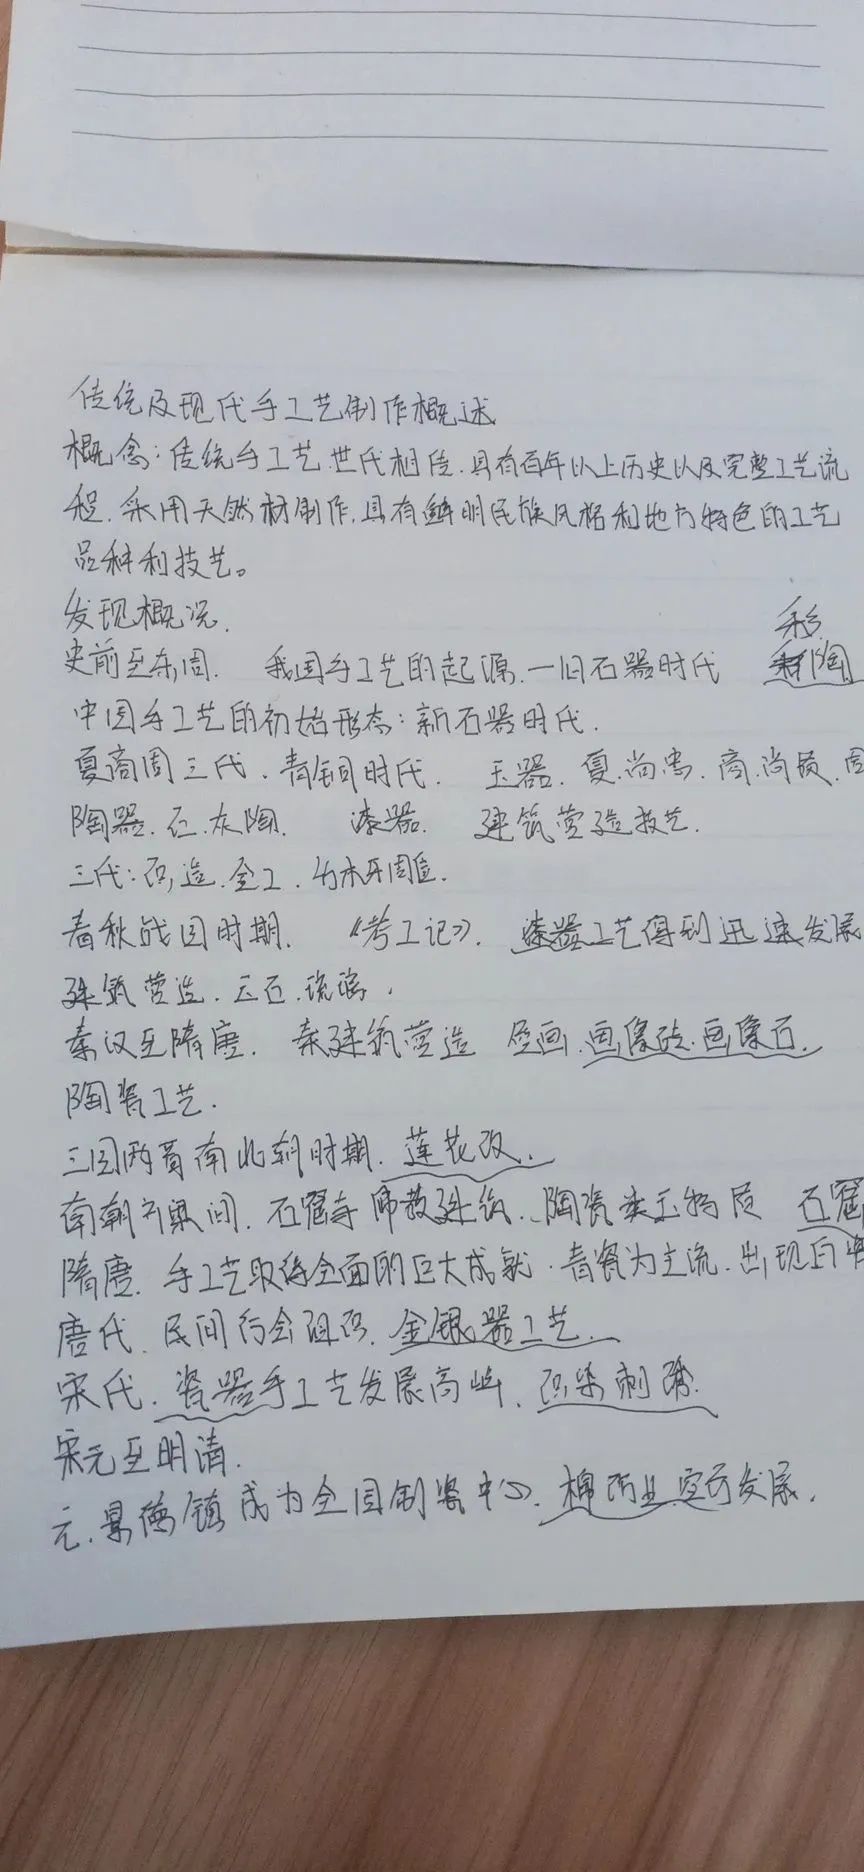 传统及现代手工艺制作概述
概念：传统手工艺.世代相传.具有百年以上历史以及完整工艺流
程.采用天然材制作.具有鲜明民族风格和地方特色的工艺
品种和技艺。
发现概况.
彩
史前至东周. 我国手工艺的起源.一旧石器时代 陶
中国手工艺的初始形态：新石器时代.
夏商周三代.青铜时代. 玉器.夏.尚忠.商.尚质.周
陶器.石.灰陶. 漆器. 建筑营造技艺.
三代：造.金工.
春秋战国时期. 《考工记》. 漆器工艺得到迅速发展
建筑营造.玉石.琉璃.
秦汉至隋唐. 秦建筑营造 壁画.画像砖.画像石.
陶瓷工艺.
三国两晋南北朝时期.莲花
南朝间.石窟寺佛教建筑..陶瓷类玉物质 石窟
隋唐.手工艺取得全面的巨大成就.青瓷为主流.出现白
唐代.民间行会组织.金银器工艺.
宋代.瓷器手工艺发展高峰.织染刺绣.
宋元至明清.
元.景德镇成为全国制瓷中心.棉纺业空前发展.